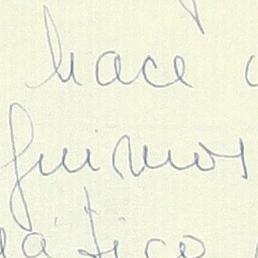 hace
guimos
ático